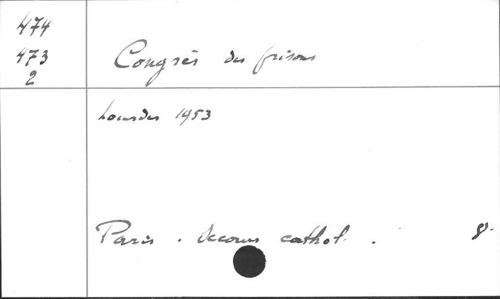 474
473
2
Congrès des prisons
Lourdes 1953
Paris . Secours cathol. . 8.